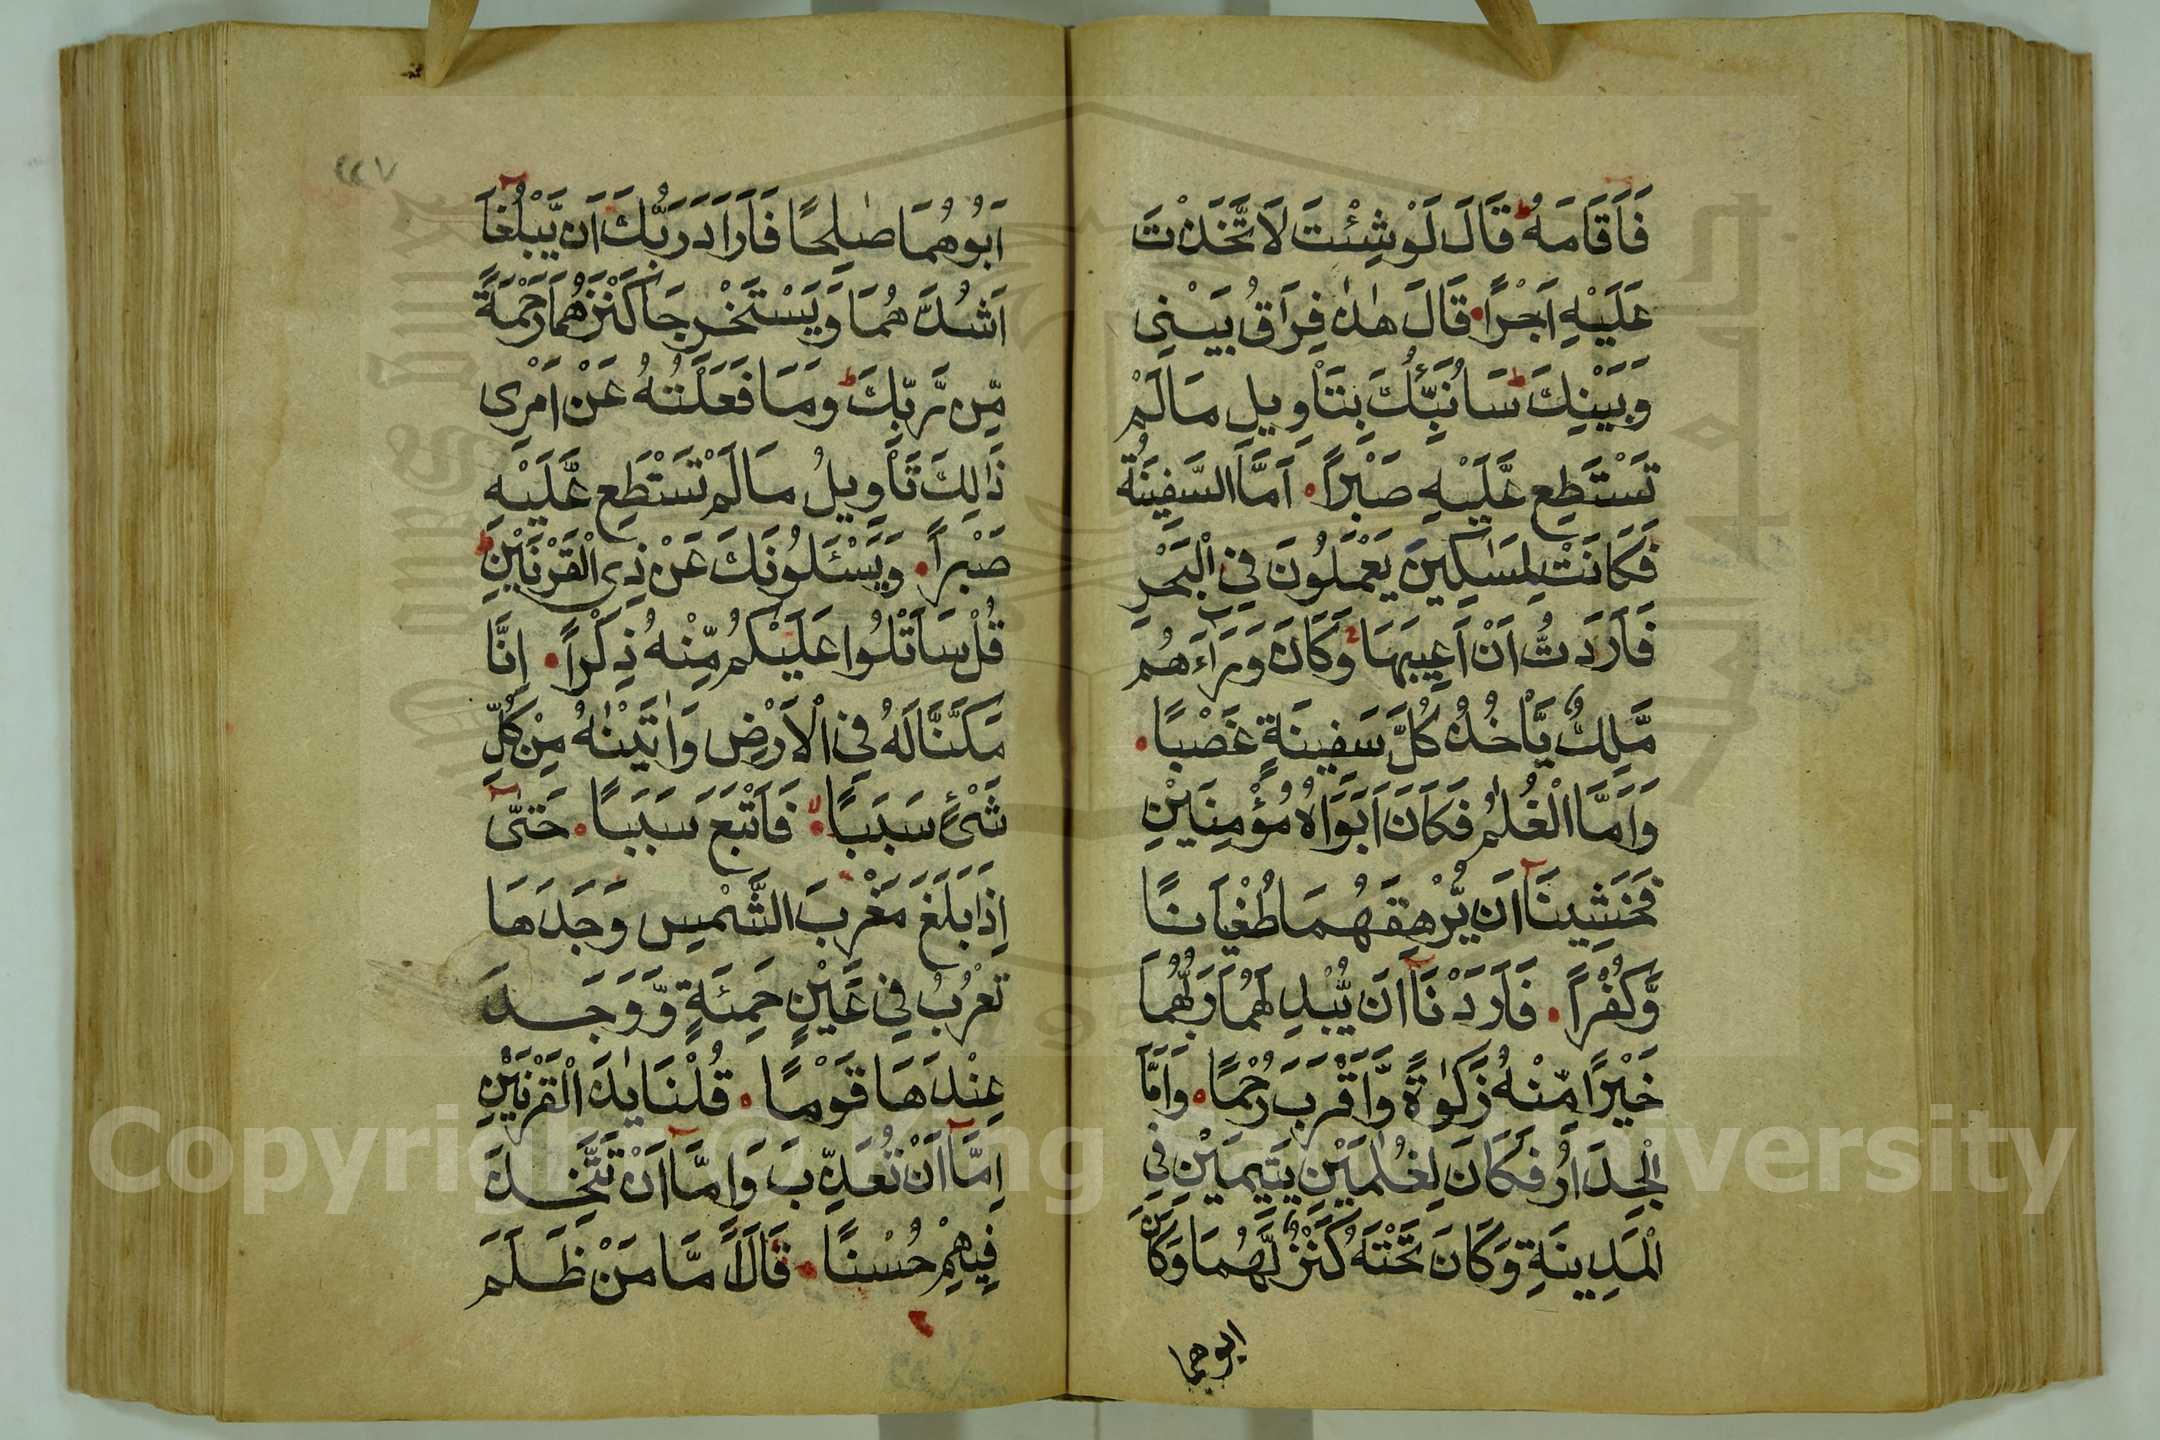 فَاَقَامَهُ ط قَالَ لَوْ شِئْتَ لَاتَّخَذْتَ
عَلَيْهِ اَجْرًا قَالَ هٰذَا فِرَاقُ بَيْنِى
وَبَيْنِكَ ط سَاُنَبِّئُكَ بِتَاْوِيلِ مَالَمْ
تَسْتَطِعِ عَّلَيْهِ صَبْرًا اَمَّا السَّفِينَةُ
فَكَانَتْ لِمَسٰكِينَ يَعْمَلُونَ فِى الْبَحْرِ
فَاَرَدتُّ اَنْ اَعِيبَهَا وَكَانَ وَرَآءَهُم
مَّلِكٌ يَّاْخُذُ كُلَّ سَفِينَةٍ غَصْبًا
وَاَمَّا الْغُلٰمُ فَكَانَ اَبَوَاهُ مُؤْمِنَيْنِ
فَخَشِينَآ اَن يُّرْهِقَهُمَا طُغْيَانًا
وَّكُفْرًا فَاَرَدْنَآ اَن يُّبْدِلَهُمَا رَبُّهُمَا
خَيْرًا مِّنْهُ زَكٰوةً وَّاَقْرَبَ رُحْمًا وَاَمَّا
الْجِدَارُ فَكَانَ لِغُلٰمَيْنِ يَتِيمَيْنِ فِى
الْمَدِينَةِ وَكَانَ تَحْتَهُ كَنْزٌ لَّهُمَا وَكَانَ
ابوهما
٤٤٧
اَبُوهُمَا صٰلِحًا فَاَرَادَ رَبُّكَ اَن يَّبْلُغَآ
اَشُدَّهُمَا وَيَسْتَخْرِجَا كَنْزَهُمَا رَحْمَةً
مِّن رَّبِّكَ ط وَمَا فَعَلْتُهُ عَنْ اَمْرِى
ذَالِكَ تَاْوِيلُ مَالَمْ تَسْتَطِعِ عَّلَيْهِ
صَبْرًا وَيَسْئَلُونَكَ عَنْ ذِى الْقَرْنَيْنِ ط
قُلْ سَاَتْلُوا عَلَيْكُم مِّنْهُ ذِكْرًا اِنَّا
مَكَّنَّا لَهُ فِى الْاَرْضِ وَاٰتَيْنٰهُ مِنْ كُلِّ
شَىْءٍ سَبَبًا لا فَاَتْبَعَ سَبَبًا حَتّٰىٓ
اِذَا بَلَغَ مَغْرِبَ الشَّمْسِ وَجَدَهَا
تَغْرُبُ فِى عَيْنٍ حَمِئَةٍ وَّوَجَدَ
عِنْدَهَا قَوْمًا قُلْنَا يٰذَا الْقَرْنَيْنِ
اِمَّآ اَنْ تُعَذِّبَ وَاِمَّآ اَنْ تَتَّخِذَ
فِيهِمْ حُسْنًا قَالَ اَمَّا مَنْ ظَلَمَ